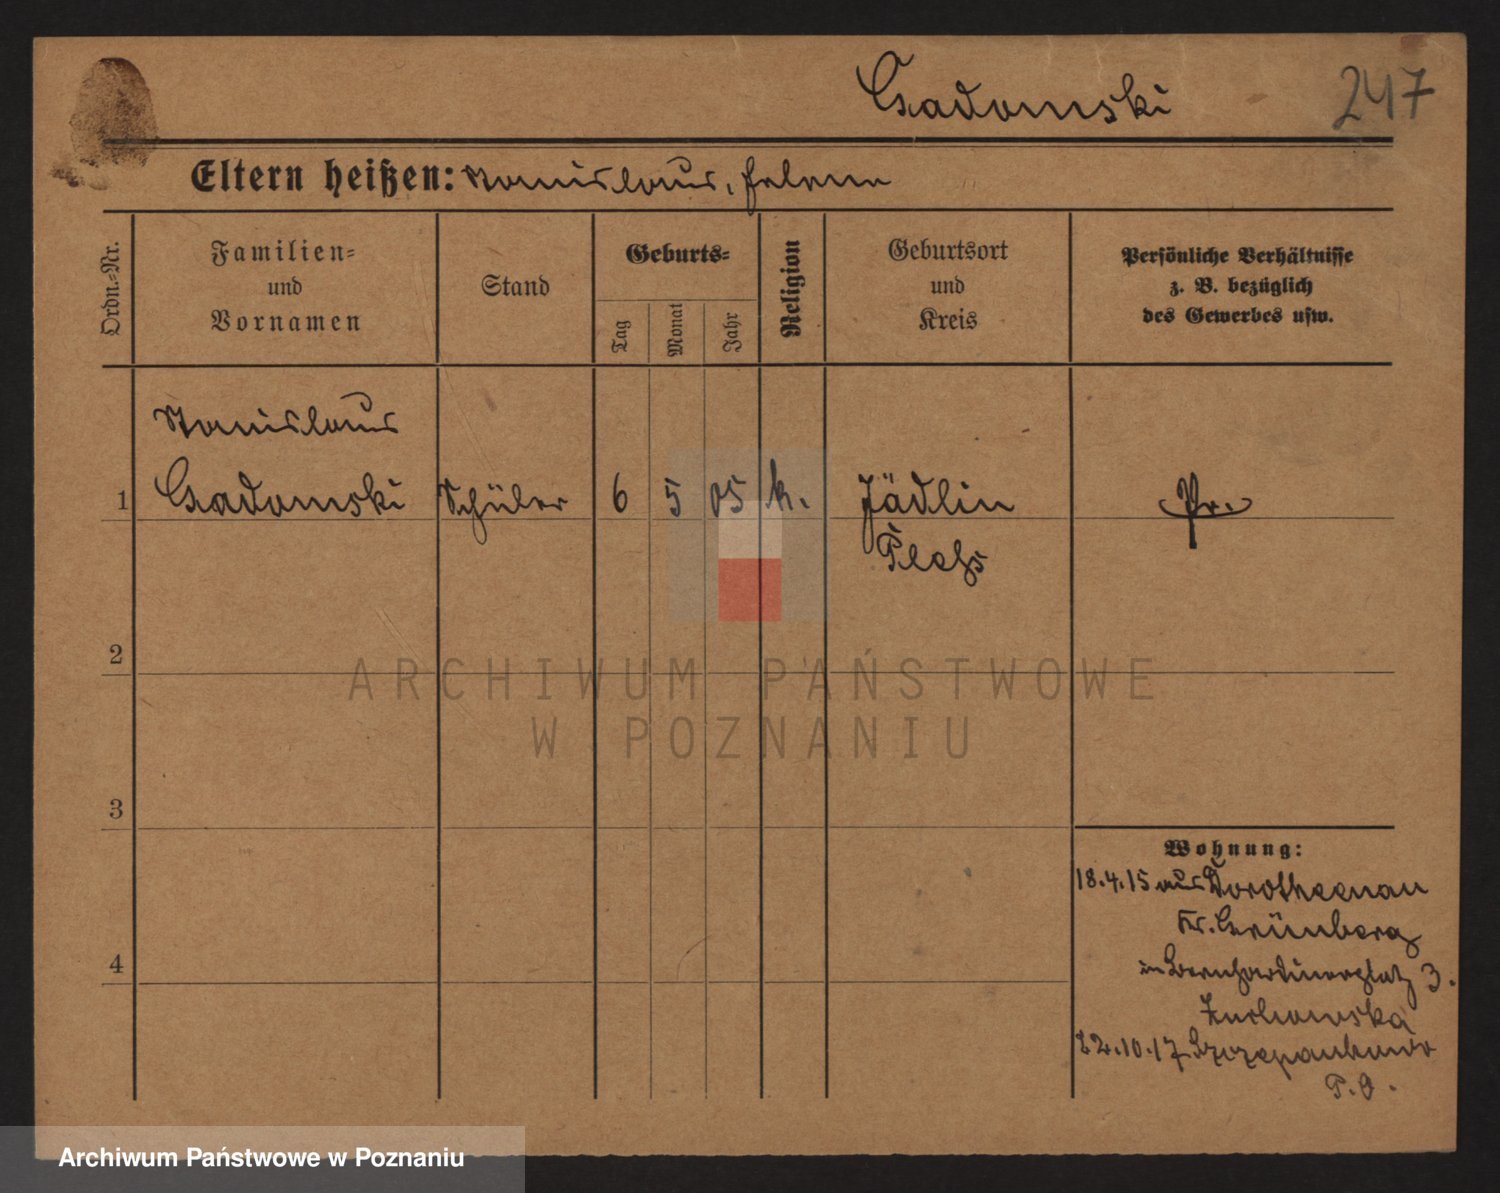 Gadomski
247
Eltern heißen: Stanislaus, Helene
Ordn.-Nr.
Familien-
und
Vornamen
Stand
Geburts-
Tag
Monat
Jahr
Religion
Geburtsort
und
Kreis
Persönliche Verhältnisse
z. B. bezüglich
des Gewerbes usw.
Stanislaus
1 Gadomski Schüler 6 5 05 k. Jädlin Pr.
2
3
4
Wohnung:
18.4.15 aus Dorotheenau
Kr. Grünberg
in Bernhardinerplatz 3.
Zuchowska
22.10.17
P.O.
ARCHIWUM PAŃSTWOWE
W POZNANIU
Archiwum Państwowe w Poznaniu